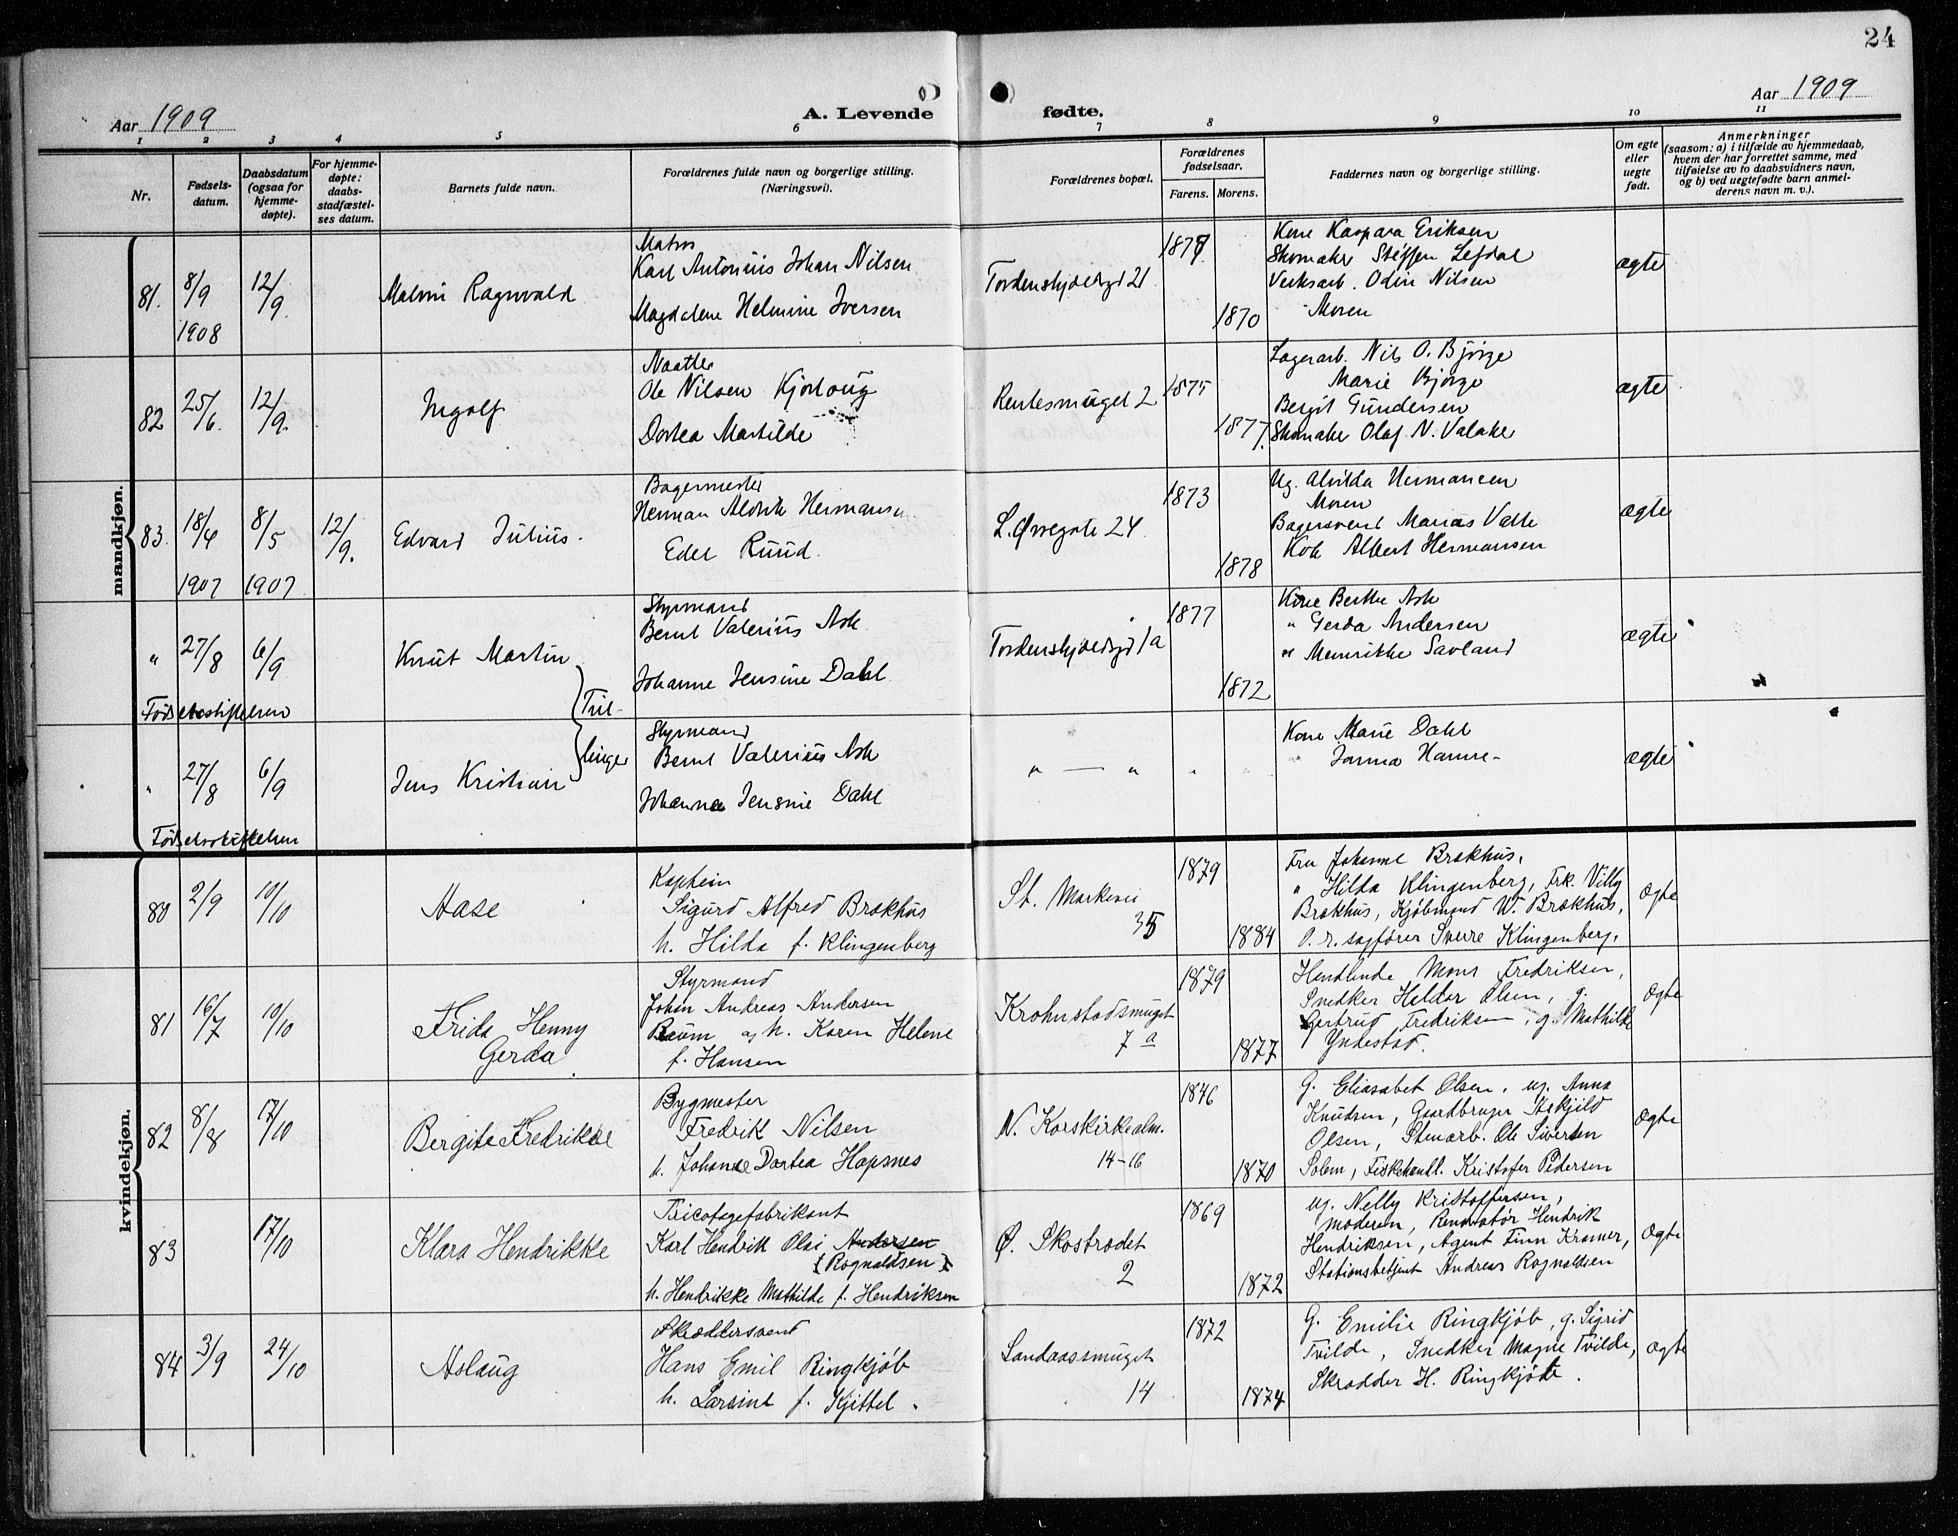 24
Aar 1909
A. Levende
fødte.
Aar 1909
1 2 3 4 5 6 7 8 9 10 11
Nr.
Fødsels-
datum.
Daabsdatum
(ogsaa for
hjemme-
døpte).
For hjemme-
døpte:
daabs-
stadfæstel-
ses datum.
Barnets fulde navn.
Forældrenes fulde navn og borgerlige stilling.
(Næringsvei).
Forældrenes bopæl.
Forældrenes
fødselsaar.
Farens. Morens.
Faddernes navn og borgerlige stilling.
Om egte
eller
uegte
født.
Anmerkninger
(saasom: a) i tilfælde av hjemmedaab,
hvem der har forrettet samme, med
tilføielse av to daabsvidners navn,
og b) ved uegtefødte barn anmel-
derens navn m. v.).
mandkjøn.
81. 8/9 1908 12/9.
Malvin Ragnvald
Matros
Karl Antonius Johan Nilsen
Magdalene Helmine Iversen
Tordenskjoldsgd 21
1877
1870
Kone Kaspara Eriksen
Skomaker Steffen Lefdal
Verksarb. Odin Nilsen
Moren
ægte
82 25/6. 12/9.
Ingolf
Ole Nilsen
Dortea Martilde
Rentesmuget 2
1875
1877.
Lagerarb. Nils O. Bjørge
Marie Bjørge
Bergit Gundersen
Skomaker Olaf N. Valake
ægte
83. 18/4 1907 8/5 1907 12/9.
Edvard Julius.
Bagermester
Herman Hermansen
Edel Ruud.
L. Øvregate 24
1873
1878
Ug. Alvilda Hermansen
Moren
Bagersvend Marius Valle
Kok Albert Hermansen
ægte
" 27/8 6/9
Fødselsstiftelsen
Knut Martin
Tvil-
Styrmand
Bernt Valerius Ask
Johanne Jensine Dahl
Tordenskjoldsgd 1a
1877
1872
Kone Berthe Ask
" Gerda Andersen
" Henrikke Savland
ægte
" 27/8 6/9
Fødselsstiftelsen
Jens Kristian
linger
Styrmand
Bernt Valerius Ask
Johanne Jensine Dahl
" — " " "
Kone Marie Dahl
Hamre
ægte
kvindekjøn.
80 2/9 10/10
Aase
Kaptein
Sigurd Alfred Brækhus
h. Hilda f. Klingenberg
St. Markevei
35
1879
1884
Fru Johanne Brækhus,
" Hilda Klingenberg, Frk. Villy
Brækhus, Kjøbmand W. Brækhus,
O. r. sagfører Sverre Klingenberg.
Ægte
81 16/7 10/10
Frida Henny
Gerda
Styrmand
Johan Andreas Andersen
Baum og h. Karen Helene
f. Hansen
Krohnstadsmuget
7 a
1879
1877
Handlende Mons Fredriksen,
Snedker Haldor Olsen, g.
Gertrud Fredriksen, g. Mathilde
Yndestad.
Ægte
82 8/8 17/10
Bergite Fredrikke
Bygmester
Fredrik Nilsen
h. Johanne Dortea Hopsnes
N. Korskirkealm.
14-16
1846
1870
G. Eliasabet Olsen, ug. Anna
Knudsen, Gaardbruger
Olsen, Stenarb. Ole Sivertsen
Solem, Fiskehandl. Kristofer Pedersen
Ægte
83 17/10
Klara Hendrikke
Tricotagefabrikant
Karl Hendrik Olai Andersen
(Rognaldsen)
h. Hendrikke Mathilde f. Hendriksen
Ø. Skostrædet
2
1869
1872
ug. Nelly Kristoffersen,
moderen, Hendrik
Hendriksen, Agent Finn Kramer,
Stationsbetjent Andreas Rognaldsen
Ægte
84 3/9 24/10
Aslaug
Skræddersvend
Hans Emil Ringkjøb
h. Larsine f. Kjittel.
Landaasmuget
14
1872
1874
G. Emilie Ringkjøb, g. Sigrid
Tvilde, Snedker Magne Tvilde,
Skrædder H. Ringkjøb.
Ægte